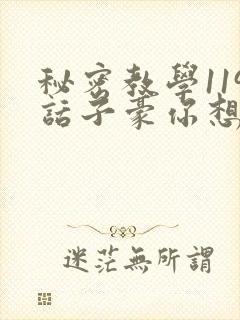 秘密教學119
話子豪你想
迷茫無所謂